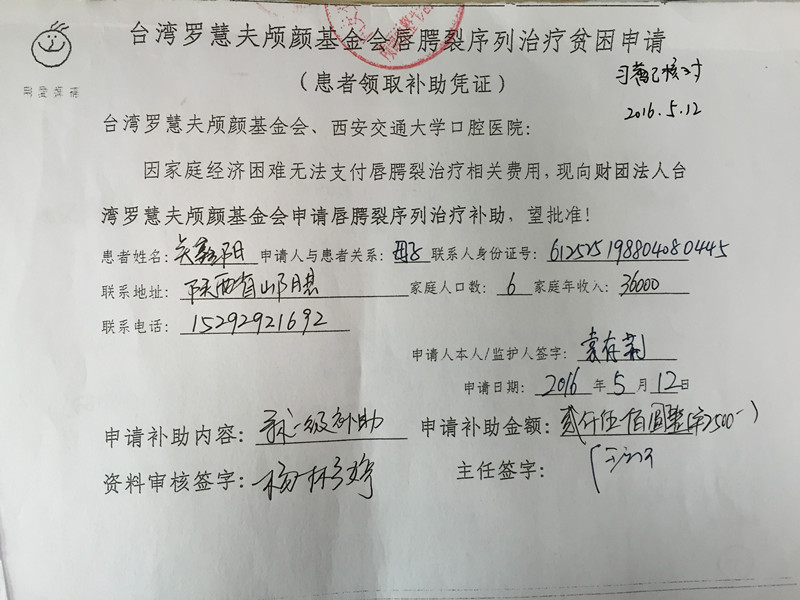 台湾罗慧夫颅颜基金会唇腭裂序列治疗贫困申请
(患者领取补助凭证)
已核对
2016.5.12
台湾罗慧夫颅颜基金会、西安交通大学口腔医院：
因家庭经济困难无法支付唇腭裂治疗相关费用，现向财团法人台
湾罗慧夫颅颜基金会申请唇腭裂序列治疗补助，望批准！
患者姓名： 申请人与患者关系：母子 联系人身份证号：612525198804080445
联系地址：陕西省山阳县 家庭人口数：6 家庭年收入：36000
联系电话：15292921692
申请人本人/监护人签字：袁存莉
申请日期：2016年5月12日
申请补助内容：一级补助 申请补助金额：贰仟伍佰圆整(¥2500-)
资料审核签字：杨 婷 主任签字：